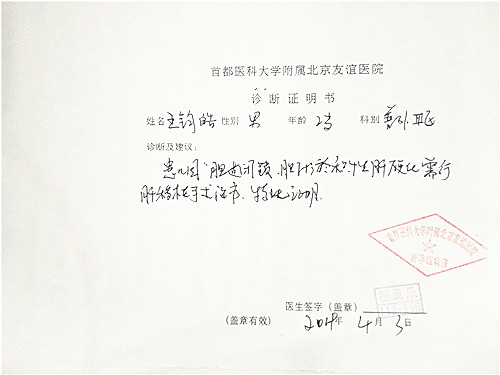 首都医科大学附属北京友谊医院
诊断证明书
姓名 王钧皓 性别 男 年龄 2岁 科别 普外
诊断及建议:
患儿因"胆道闭锁、胆汁淤积性肝硬化"需行
肝移植手术治疗、特此证明
首都医科大学附属北京友谊医院
医生签字(盖章)
(盖章有效) 2014年 4月 3日